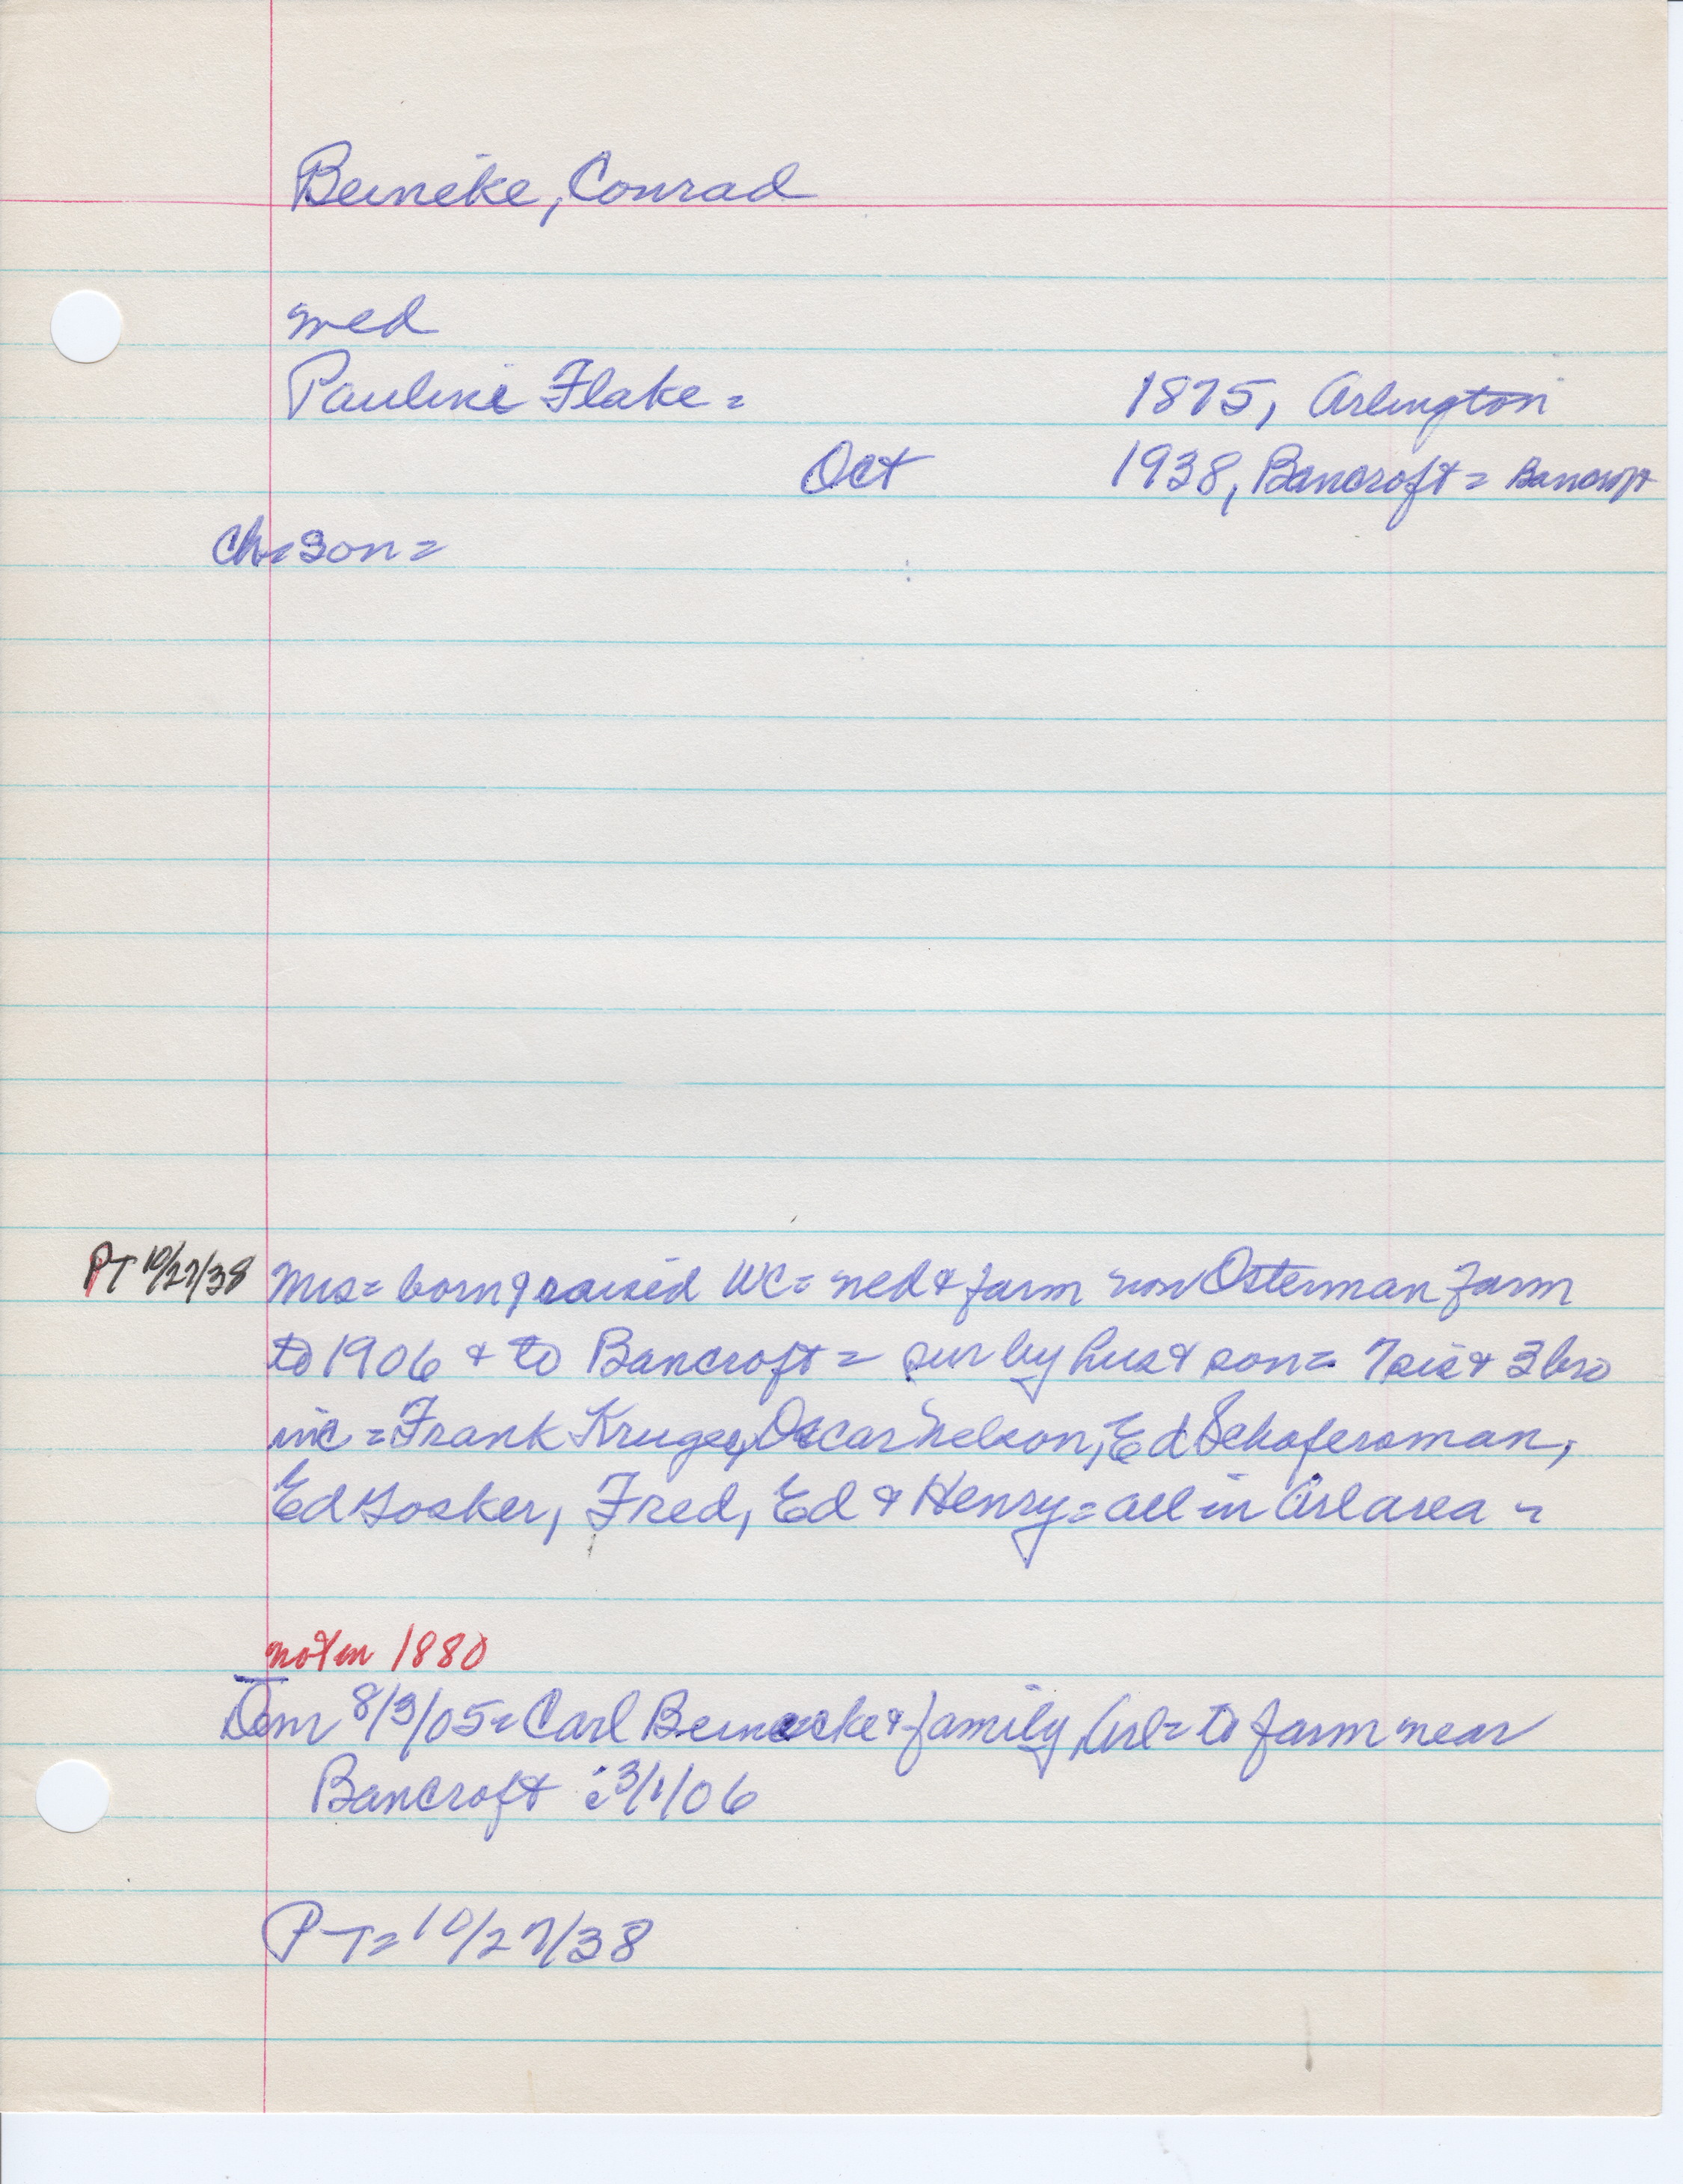 Beineke, Conrad
wed
Pauline Flake =
1875, Arlington
Oct 1938, Bancroft = Bancroft
Ch = son =
PT 10/27/38 Mrs = born & raised WC = wed & farm now Osterman farm
to 1906 & to Bancroft = sur by hus & son = 7 sis & 3 bro
inc = Frank Kruger, Oscar Nelson, Ed Schafersman,
Ed Gosker, Fred, Ed & Henry = all in Arl area =
not in 1880
Dem 8/3/05 = Carl Beinecke & family, Arl = to farm near
Bancroft : 3/1/06
PT = 10/27/38